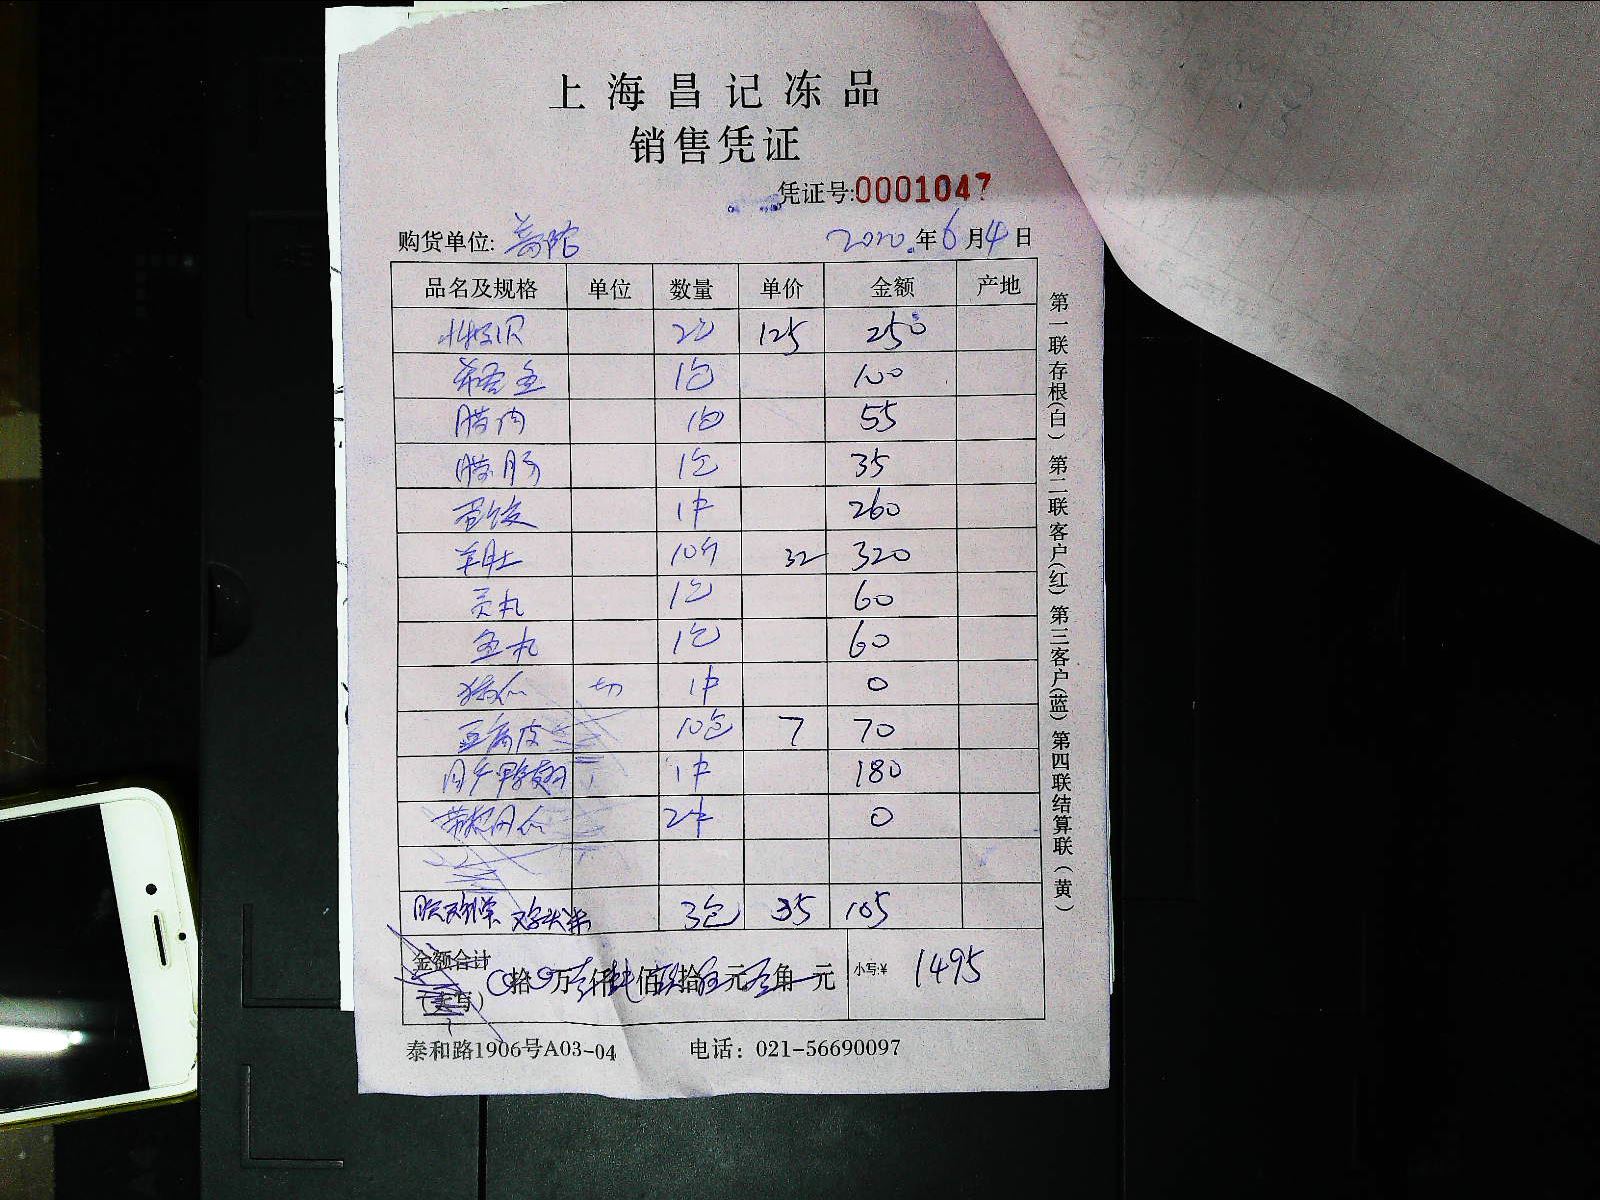 上海昌记冻品
销售凭证
凭证号:0001047
购货单位: 普陀 2020年6月4日
品名及规格 单位 数量 单价 金额 产地
北极贝 2包 125 250
希鲮鱼 1包 100
腊肉 1包 55
腊肠 1包 35
蛋饺 1件 260
羊肚 10斤 32 320
贡丸 1包 60
鱼丸 1包 60
切 1件 0
豆腐皮 10包 7 70
鸭翅 1件 180
2件 0
鸡头米 3包 35 105
金额合计
(大写) 拾万仟佰拾元角元 小写:¥ 1495
泰和路1906号A03-04 电话：021-56690097
第一联存根(白) 第二联客户(红) 第三客户(蓝) 第四联结算联(黄)